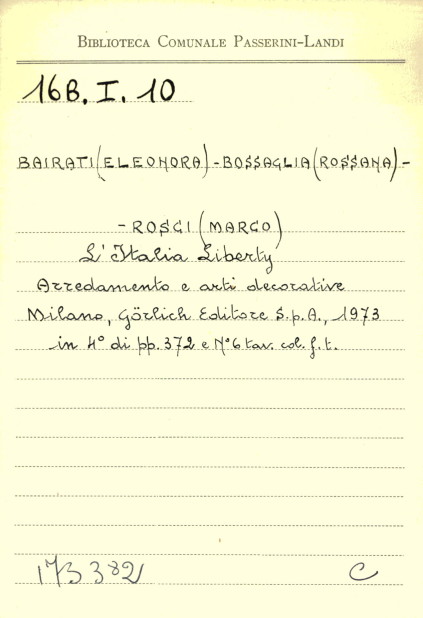 Biblioteca Comunale Passerini-Landi
16B. I. 10
BAIRATI (ELEONORA) - BOSSAGLIA (ROSSANA) -
- ROSCI (MARCO)
L'Italia Liberty
Arredamento e arti decorative
Milano, Görlich Editore S.p.A., 1973
in 4° di pp. 372 e N° 6 tav. col. f. t.
173382 C